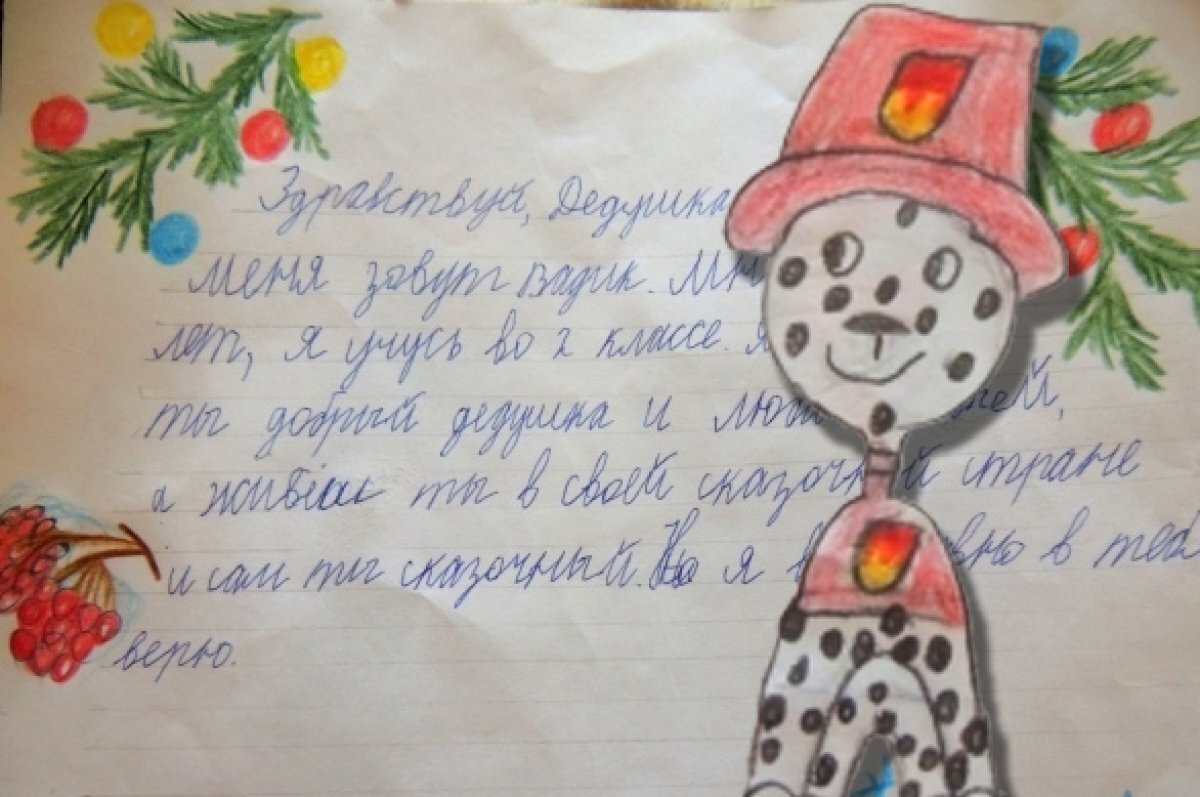 Здравствуй, Дедушка
меня зовут Вадик.
лет, я учусь во 2 классе. я
ты добрый дедушка и
а живёшь ты в своей сказочной стране
и сам ты сказочный. Но я в тебя
верю.